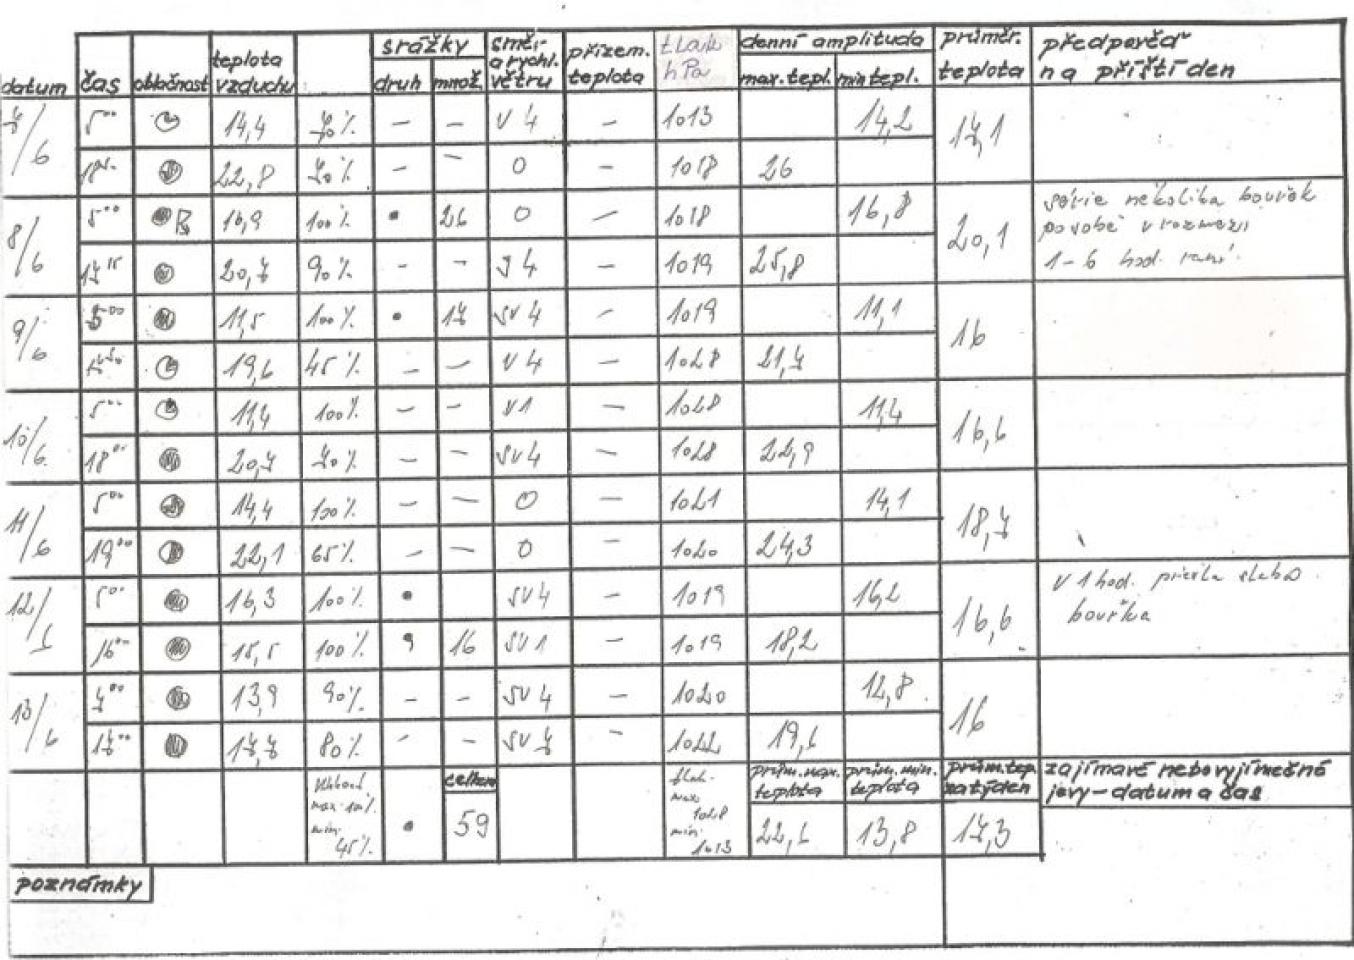 datum čas oblačnost teplota vzduchu srážky druh množ. směr a rychl. větru přízem. teplota tlak hPa denní amplituda max. tepl. min tepl. průměr. teplota předpověď na příští den
7/6 5⁰⁰ 14,4 70% – – V 4 – 1013 14,2 17,1
22,8 70% – – 0 – 1018 26
8/6 5⁰⁰ 16,9 100% • 26 0 – 1018 16,8 20,1 série několika bouřek
po sobě v rozmezí
17¹⁵ 20,7 90% – – J 4 – 1019 25,8 1–6 hod. raní.
9/6 5⁰⁰ 11,5 100% • 17 SV 4 – 1019 11,1 16
19,6 45% – – V 4 – 1028 21,7
10/6 5⁰⁰ 11,4 100% – – V1 – 1028 11,4 16,6
18⁰⁰ 20,7 70% – – SV 4 – 1028 22,9
11/6 5⁰⁰ 14,4 100% – – 0 – 1021 14,1 18,7
19⁰⁰ 22,1 65% – – 0 – 1020 24,3
12/ 5⁰⁰ 16,3 100% • SV 4 – 1019 16,2 16,6 v 1 hod. přešla slabá
bouřka
16⁰⁰ 15,5 100% • 16 SV 1 – 1019 18,2
13/6 7⁰⁰ 13,9 90% – – SV 4 – 1020 12,8 16
17⁰⁰ 17,7 80% – – SV 7 1022 19,6
Vlhkost max 100% min. 45% • celkem 59 tlak max 1028 min. 1013 prům. max. teplota 22,6 prům. min. teplota 13,8 prům. tep. za týden 17,3 zajímavé nebo vyjímečné jevy – datum a čas
poznámky